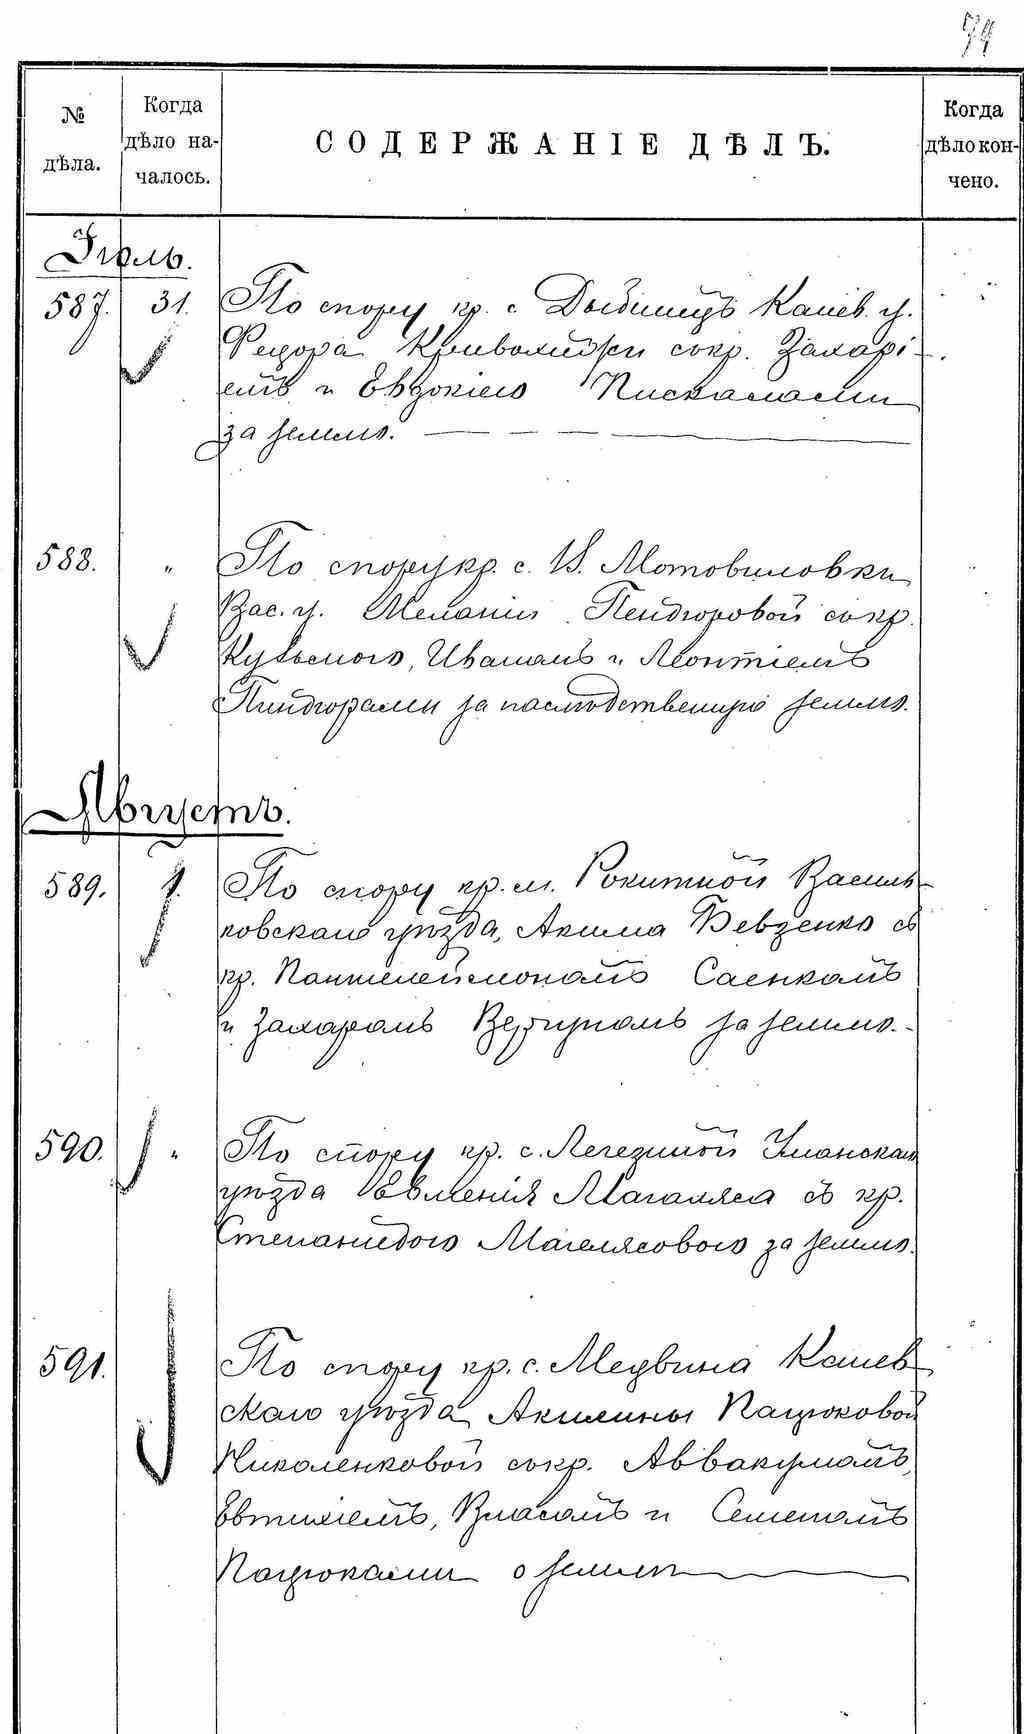 74
№ дѣла.
Когда дѣло началось.
СОДЕРЖАНІЕ ДѢЛЪ.
Когда дѣло кончено.
Іюль.
587. 31. По спору кр. с. Дыбинецъ Канев. у.
Федора сокр. Захарі-
емъ и Евдокіею Пискалами
за землю.
588. " По спору кр. с. В. Мотовиловки
Вас. у. Меланіи Пендюровой съ кр.
Кузьмою, Иваномъ и Леонтіемъ
Пиндюрами за наслѣдственную землю.
Августъ.
589. 1. По спору кр. м. Рокитной Василь-
ковскаго уѣзда, Акима Бевзенко съ
кр. Пантелеймономъ Саенкомъ
и Захаромъ за землю.-
590. " По спору кр. с. Легезиной Уманскаго
уѣзда Евменія Магаляса съ кр.
Степанидою Магелясовою за землю.
591. По спору кр. с. Медвина Канев-
скаго уѣзда Акилины Пацюковой
Николенковой съ кр. Аввакумомъ,
Евтихіемъ, Власомъ и Семеномъ
Пацюками о землѣ